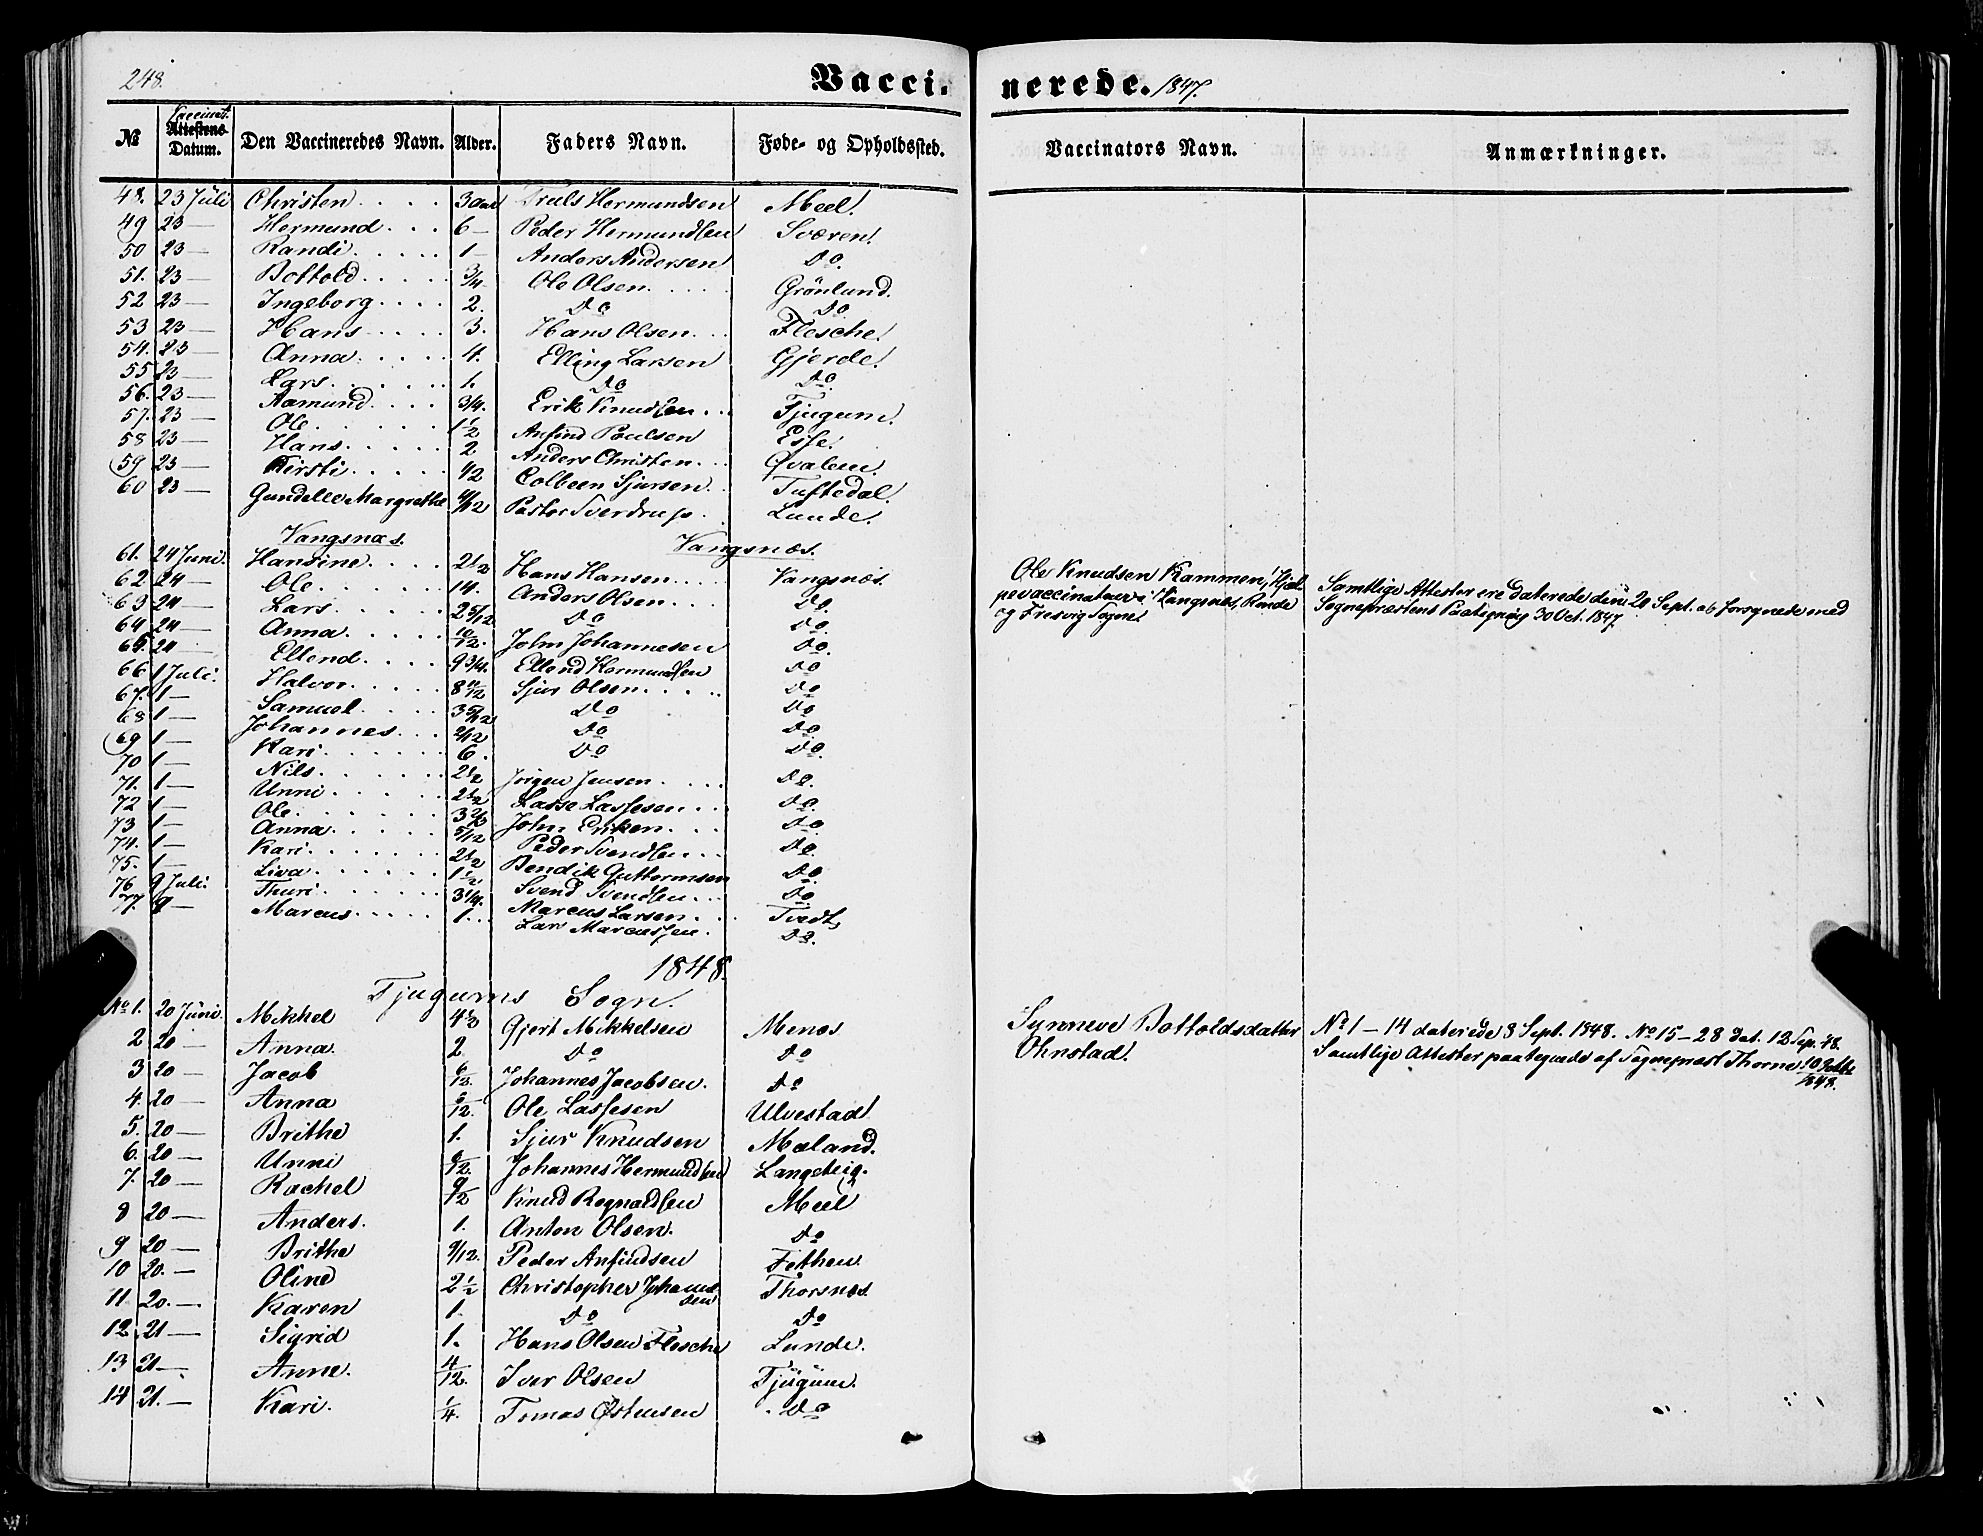 248.
Vacci- nerede. 1847.
№ Vaccinat. Attestens Datum. Den Vaccineredes Navn. Alder. Faders Navn. Føde- og Opholdssted. Vaccinators Navn. Anmærkninger.
48. 23 Juli Christen 3 Aar Truls Hermundsen Meel.
49 23 — Hermund 6 — Peder Hermundsen Sværen.
50 23 — Randi 1 — Anders Andersen Do.
51. 23 — Bottold 3/4 Ole Olsen Grönlund.
52 23 — Ingeborg 2. Do Do.
53 23 — Hans 3. Hans Olsen Flesche.
54. 23 — Anna 4. Elling Larsen Gjerde.
55 23 — Lars 1. Do Do.
56. 23 — Aamund 3/4. Erik Knudsen Tjugum.
57. 23 — Ole 1 1/2 Anfind Poulsen Esse.
58 23 — Hans 2 Anders Christen Qvalem.
59 23 — Kirsti 1/2 Colbeen Sjursen Tuftedal.
60 23 — Gundelle Margrethe 4/12 Pastor Sverdrup Lunde.
Vangsnæs. Vangsnæs.
61. 24 Juni. Hansine 2 1/2 Hans Hansen Vangsnæs.
62. 24 — Ole 14. Anders Olsen Do.
63 24 — Lars 2 5/12 Do Do.
64 24 — Anna 10/12. John Johannesen Do.
65. 24 — Ellend 9 3/4. Ellend Hermundsen Do
66 1 Juli. Halvor 8 11/12 Sjur Olsen Do
67. 1 — Samuel 3 5/12 Do Do
68 1 — Johannes 2/12 Do Do.
69 1 — Kari 6. Do Do.
70 1 — Nils 2 1/2 Jörgen Jensen Do.
71. 1 — Unni 2 1/2 Lasse Lassesen Do.
72 1 — Ole 3 2/3 John Eriksen Do.
73 1 — Anna 5/12 Peder Svendsen Do.
74. 1 — Kari 2 1/2 Bendik Guttormsen Do.
75. 1 — Liva 1 1/2 Svend Svendsen Do.
76 9 Juli. Thuri 3 1/4. Marcus Larsen Tvedt,
77. 9 — Marcus 1. Lars Marcussen Do.
Ole Knudsen Kammen, Hjel
pevaccinateur i Vangsnæs, Rende
og Fresvig Sogne
Samtlige Attester ere daterede den 20 Sept. og forsynede med
Sognepræstens Paategning 30 Oct. 1847.
1848.
Tjugums Sogn.
No 1. 20 Juni. Mikkel 4 1/2 Gjert Mikkelsen Menæs
2 20 — Anna. 2 Do Do
3 20 — Jacob 6/12. Johannes Jacobsen. Do
4. 20 — Anna 6/12. Ole Lassesen Ulvestad
5. 20 — Brithe 1. Sjur Knudsen Mæland.
6. 20 — Unni 6/12. Johannes Hermundsen Langeteig.
7. 20 — Rachel 9/12 Knud Regnaldsen Meel
8 20 — Anders. 1. Anton Olsen. Do
9 20 — Brithe 9/12. Peder Anfindsen Fethen.
10 20. — Oline 2 1/2 Christopher Johannessen Thorsnæs
11. 20. — Karen 1. Do Do
12. 21 — Sigrid 1. Hans Olsen Flesche Lunde.
13 21 — Anne. 4/12. Iver Olsen Tjugum.
14 21. — Kari. 1/4. Tomas Östensen Do
Synneve Bottoldsdatter
Ohnstad.
No 1 — 14 daterede 8 Sept. 1848. No 15 — 28 dat. 12 Sep. 48.
Samtlige Attester paategnede af Sognepræst Thorne 10 Octbr
1848.